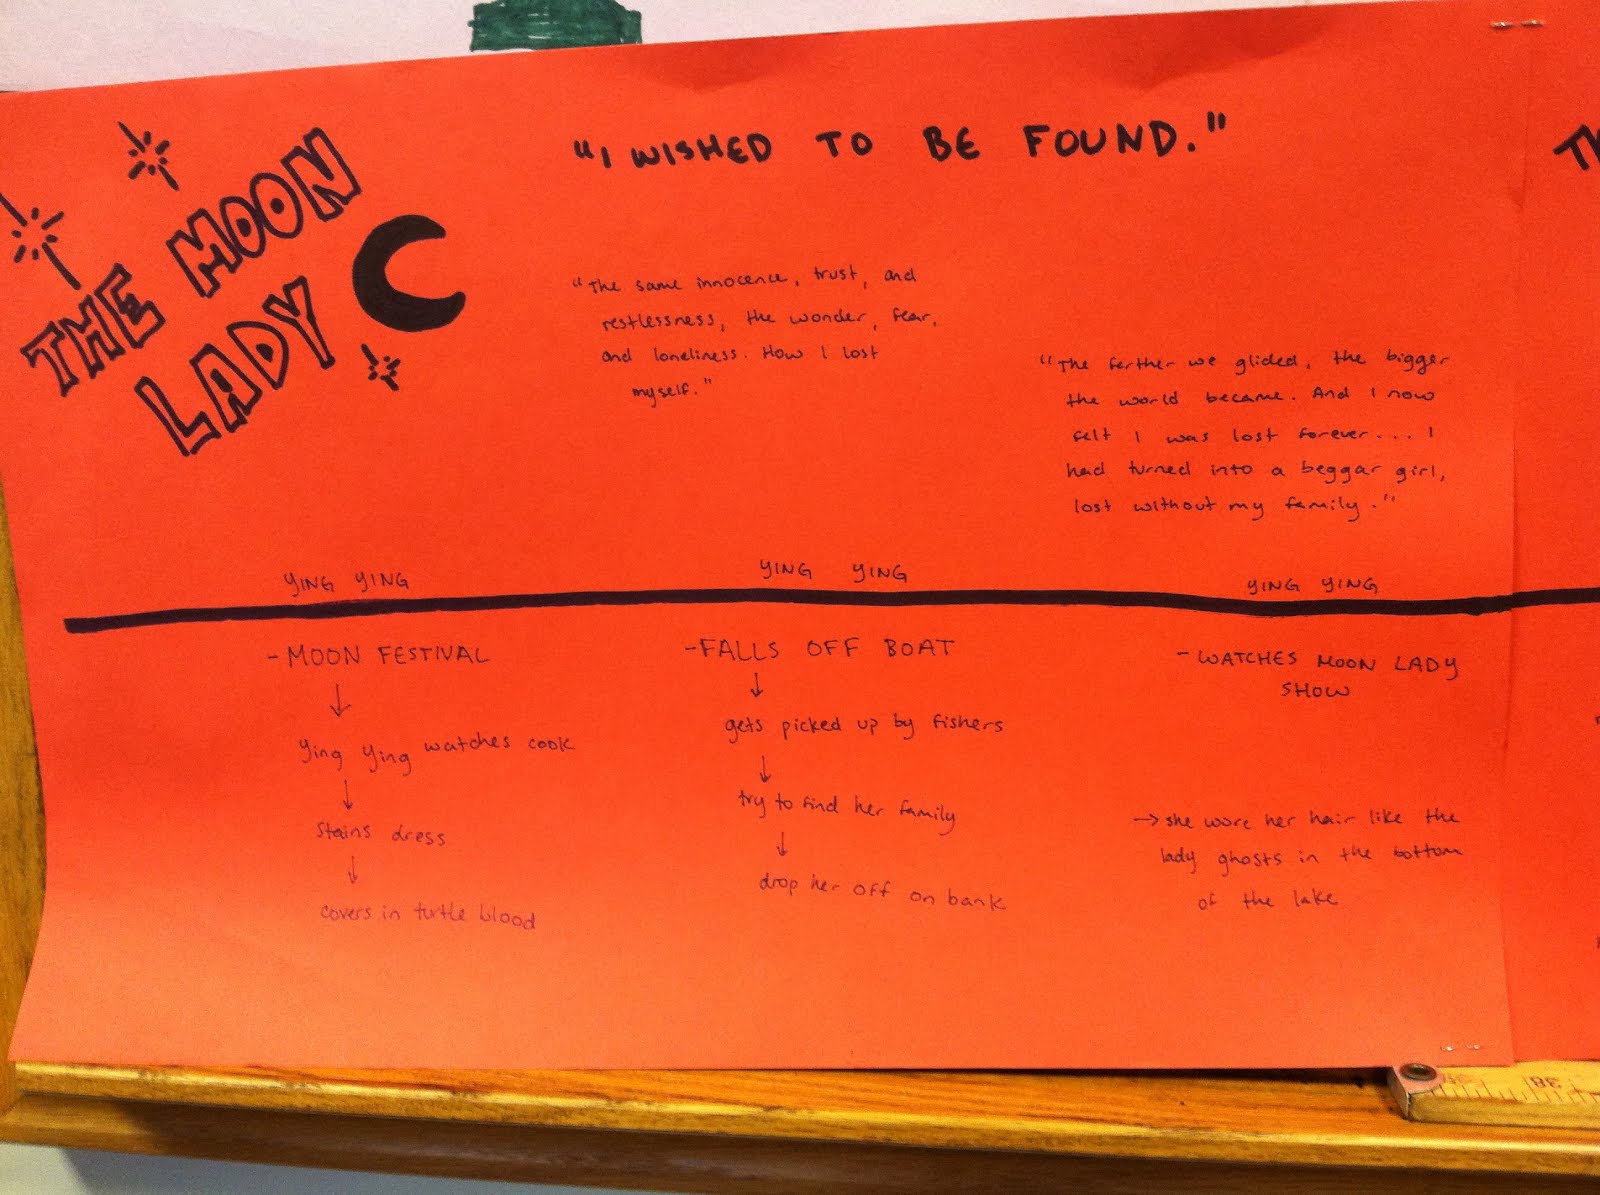 THE MOON
LADY
"I WISHED TO BE FOUND."
"The same innocence, trust, and
restlessness, the wonder, fear,
and loneliness. How I lost
myself."
"The farther we glided, the bigger
the world became. And I now
felt I was lost forever... I
had turned into a beggar girl,
lost without my family."
YING YING
-MOON FESTIVAL
Ying Ying watches cook
stains dress
covers in turtle blood
YING YING
-FALLS OFF BOAT
gets picked up by fishers
try to find her family
drop her off on bank
YING YING
-WATCHES MOON LADY
SHOW
→ she wore her hair like the
lady ghosts in the bottom
of the lake
38